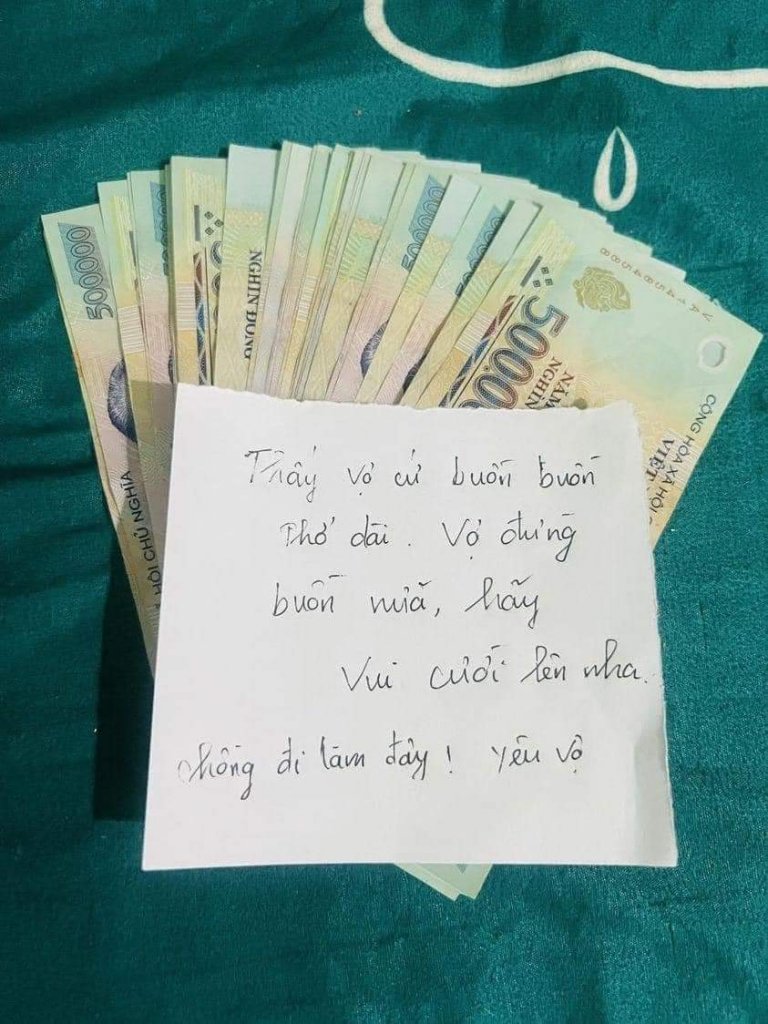 500000
NGHÌN ĐỒNG
500000
VA 1454588
500.0
NĂM
NGHÌN
CỘNG HÒA XÃ HỘI
VIỆT
HỘI CHỦ NGHĨA
Thấy vợ cứ buồn buồn
thở dài. Vợ đừng
buồn nữa, hãy
vui cười lên nha.
chồng đi làm đây! yêu vợ